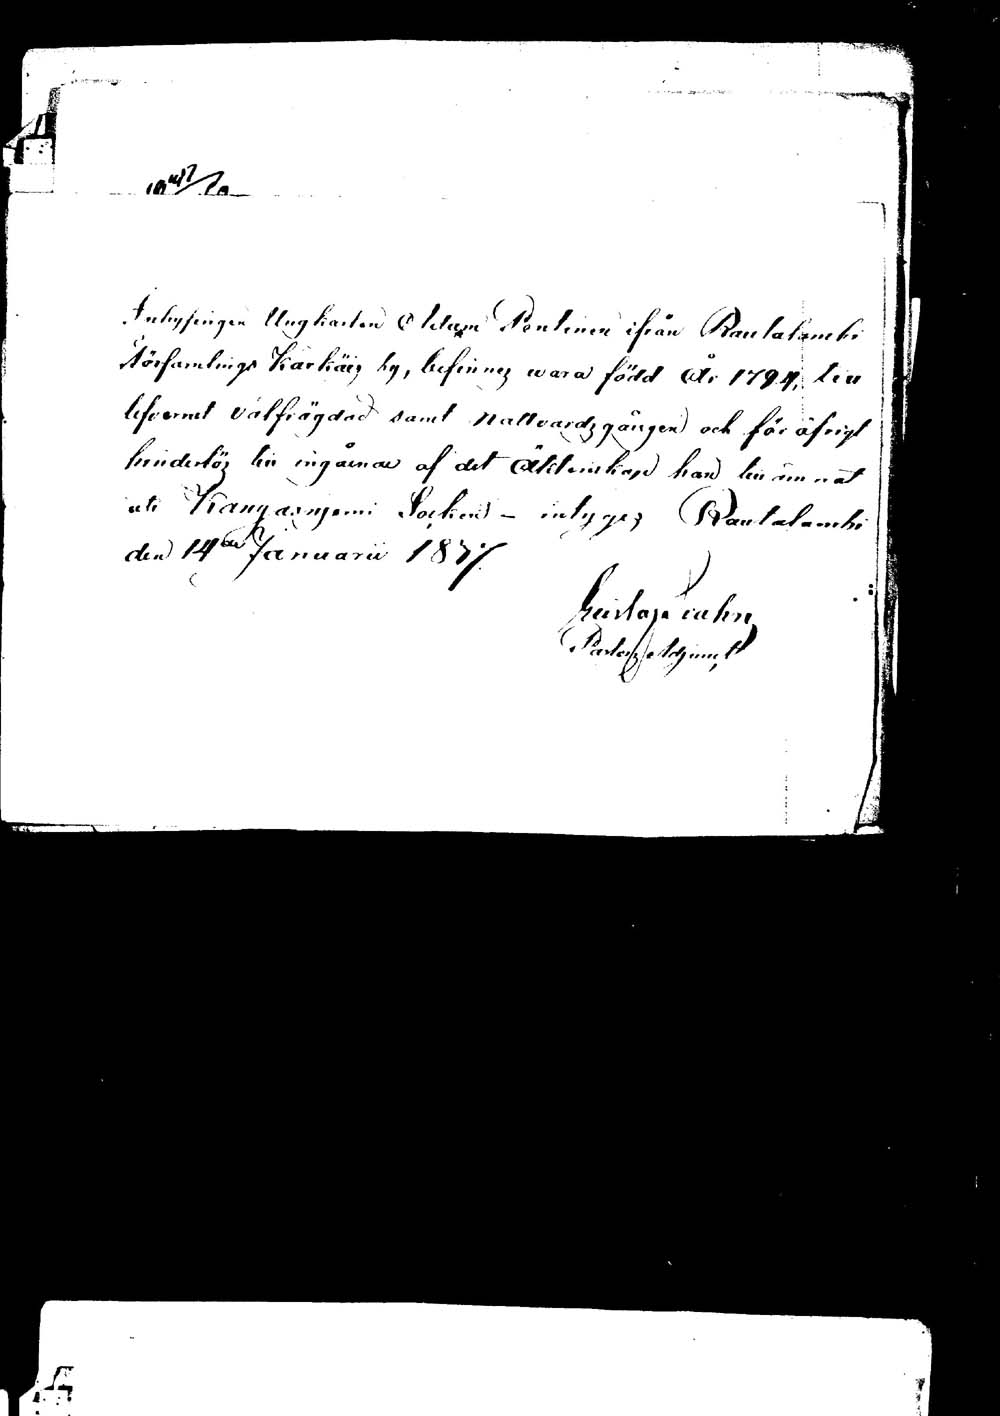 Inhysingen Ungkarlen Adam Pentinen ifrån Rautalambi
Församlings Kärkäis by, befinnes wara född År 1794, till
lefvernet välfrägdad samt nattvardsgången och för öfrigt
hinderlös till ingående af det Äktenskap han till ämnat
uti Kangasnjemi Socken – intygas Rautalambi
den 14de Januarii 1837.
Gustaf
Pastors Adjunct